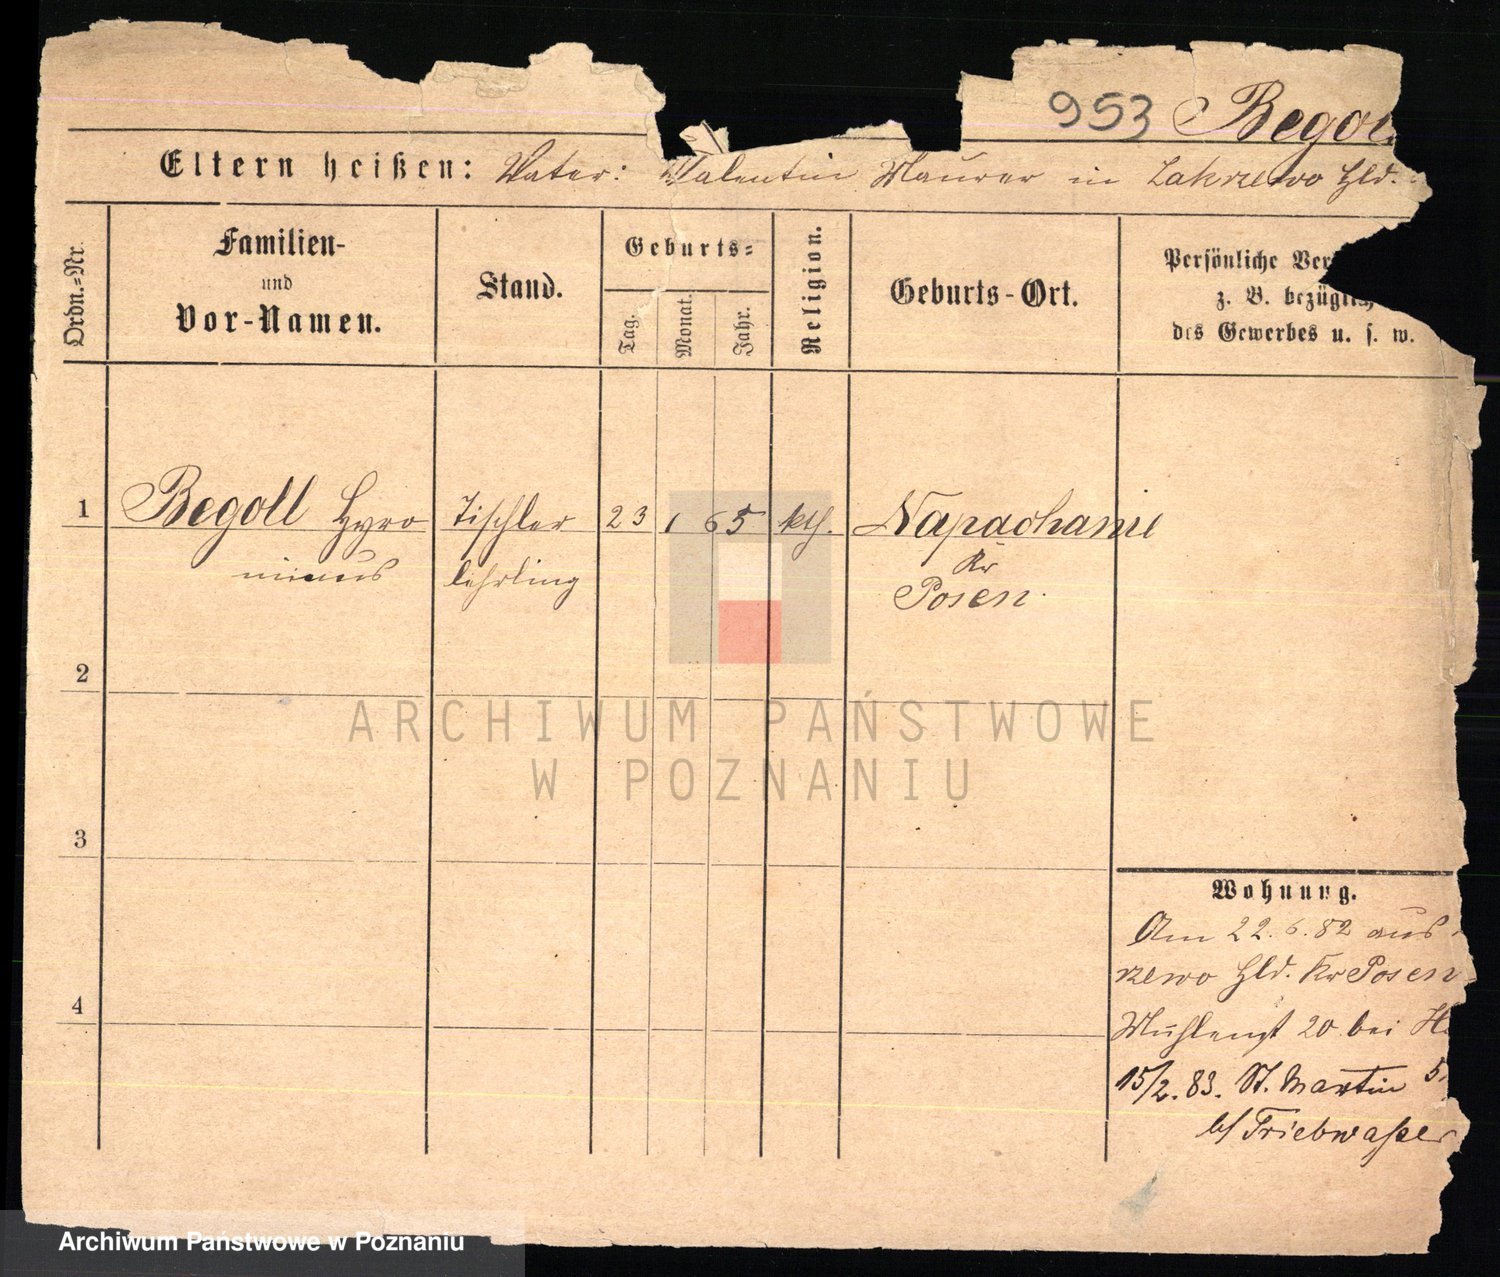 953 Begol
Eltern heißen: Vater: Valentin Maurer in Lakrzewo Hld.
Ordn.=Nr.
Familien-
und
Vor-Namen.
Stand.
Geburts=
Tag.
Monat.
Jahr.
Religion.
Geburts-Ort.
Persönliche Ver
z. B. bezüglich
des Gewerbes u. s. w.
1 Begoll Hyro Tischler 23 1 65 kth. Napachanie
minus lehrling Kr
Posen.
2
ARCHIWUM PAŃSTWOWE
W POZNANIU
3
Wohnung.
Am 22.6.82 aus
rzewo Hld. Kr Posen
4
Mühlenst 20 bei
15/2. 83. St. Martin 5
b/ Triebwaßer
Archiwum Państwowe w Poznaniu